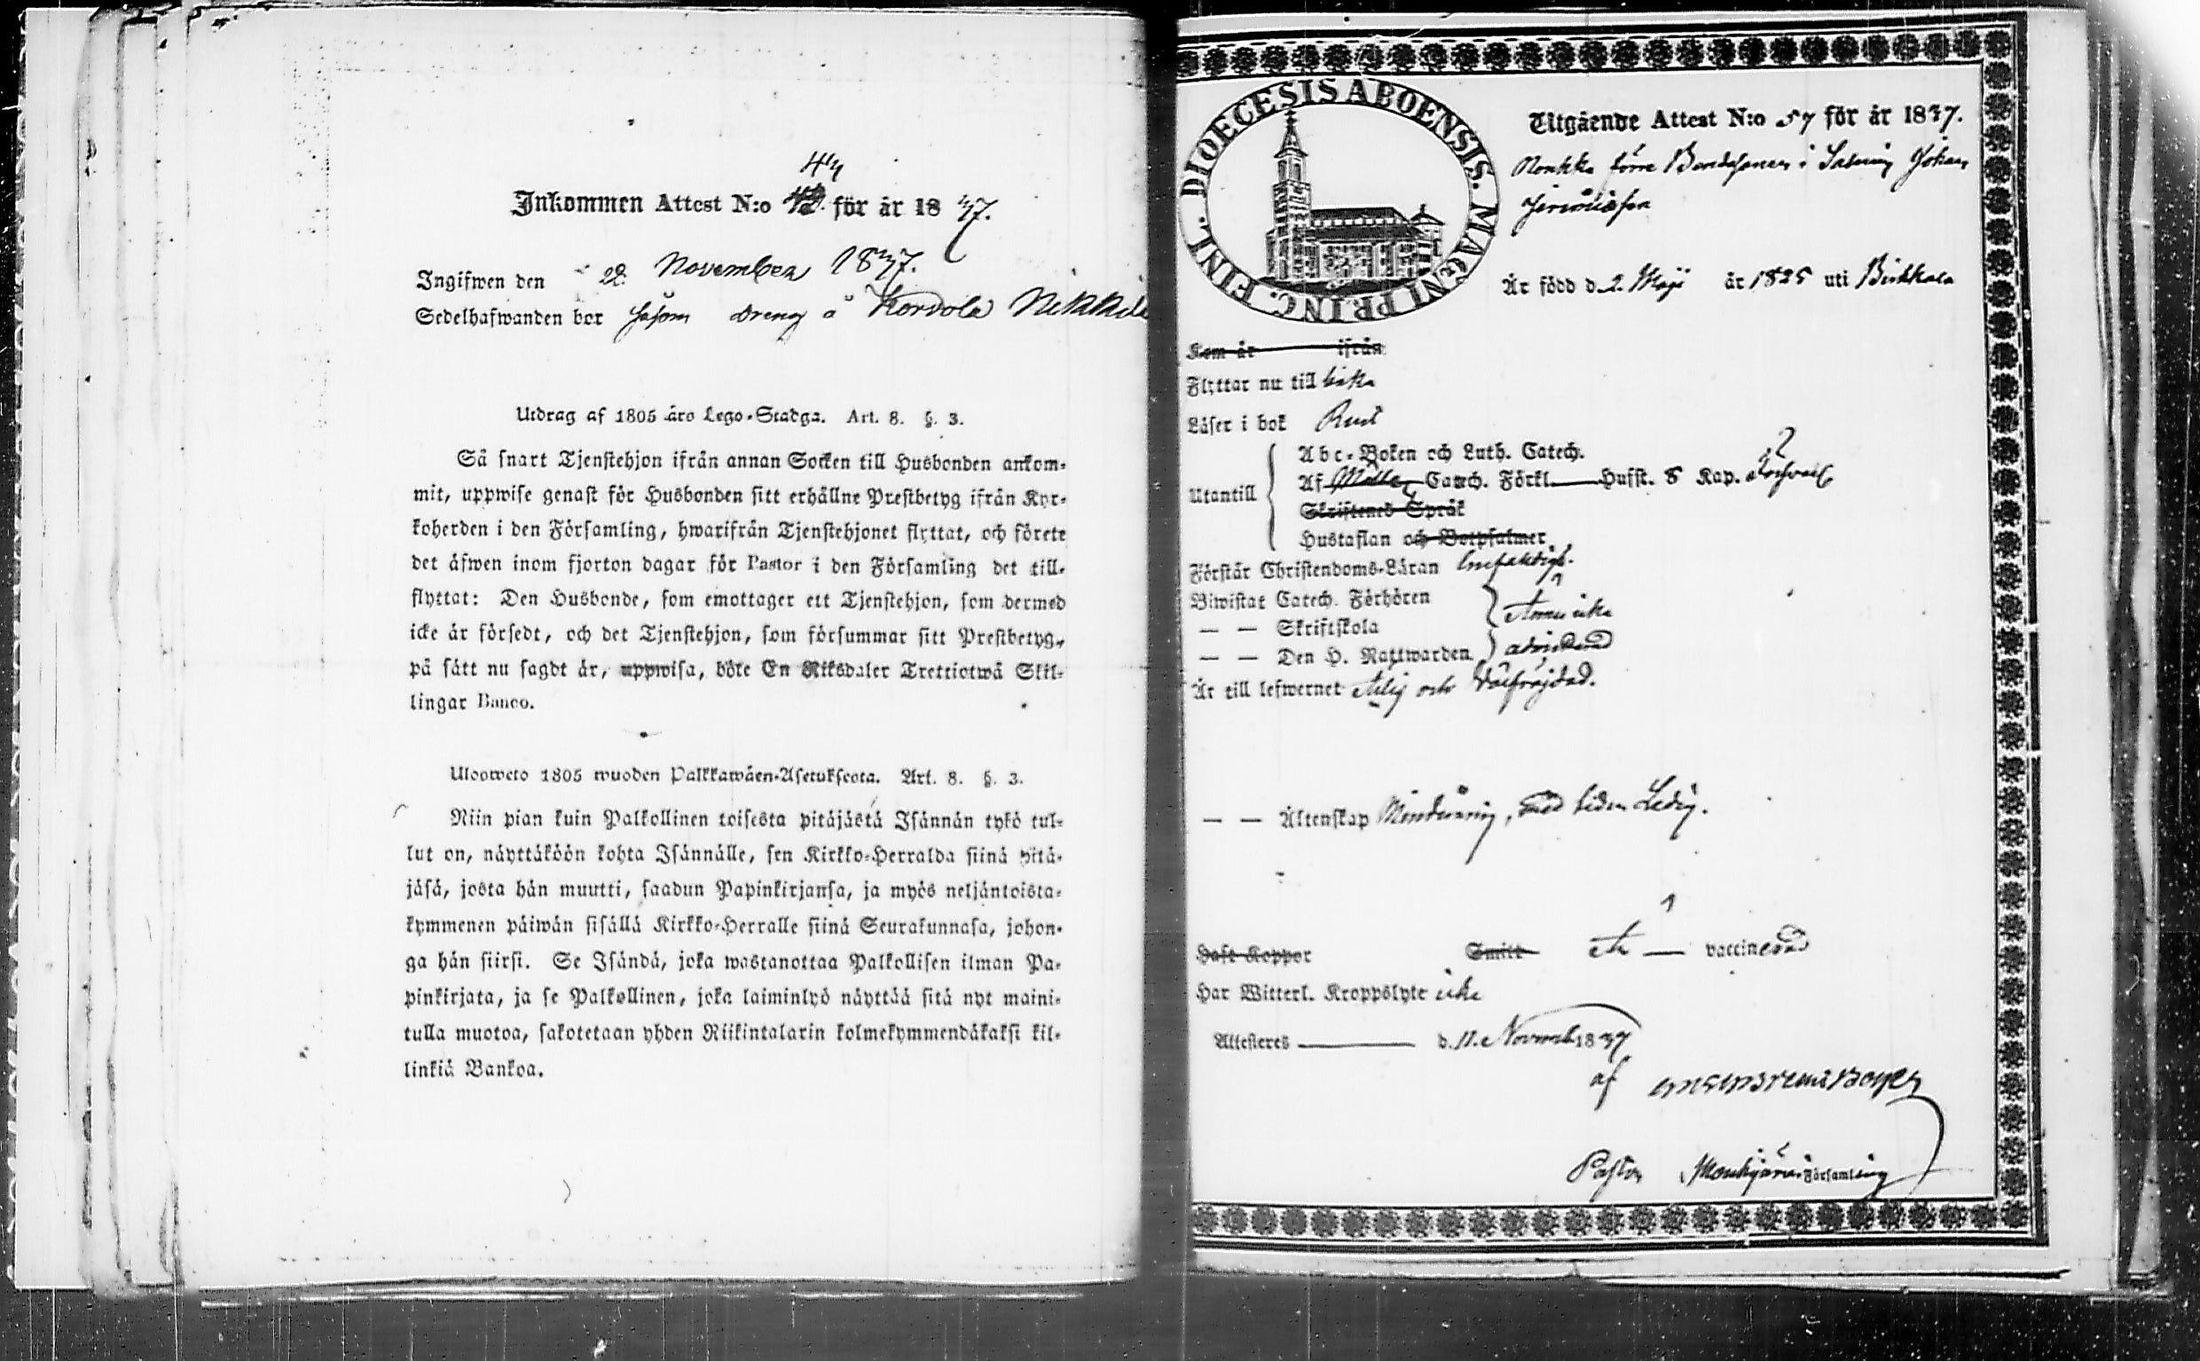 44
Inkommen Attest N:o 43. för år 1837.
Ingifwen den 28 November 1837.
Sedelhafwanden bor såsom dreng å Kordola Nikkilä
Utdrag af 1805 års Lego-Stadga. Art. 8. §. 3.
Så snart Tjenstehjon ifrån annan Socken till Husbonden ankom-
mit, uppwise genast för Husbonden sitt erhållne Prestbetyg ifrån Kyr-
koherden i den Församling, hwarifrån Tjenstehjonet flyttat, och förete
det äfwen inom fjorton dagar för Pastor i den Församling det till-
flyttat: Den Husbonde, som emottager ett Tjenstehjon, som dermed
icke är försedt, och det Tjenstehjon, som försummar sitt Prestbetyg,
på sått nu sagdt är, uppwisa, böte En Riksdaler Trettiotwå Skil-
lingar Banco.
Ulosweto 1805 wuoden Palkkawäen-Asetuksesta. Art. 8. §. 3.
Niin pian kuin Palkollinen toisesta pitäjästä Isännän tykö tul-
lut on, näyttäköön kohta Isännälle, sen Kirkko-Herralda siinä pitä-
jäsä, josta hän muutti, saadun Papinkirjansa, ja myös neljäntoista-
kymmenen päiwän sisällä Kirkko-Herralle siinä Seurakunnasa, johon-
ga hän siirsi. Se Isändä, joka wastanottaa Palkollisen ilman Pa-
pinkirjata, ja se Palkollinen, joka laiminlyö näyttää sitä nyt maini-
tulla muotoa, sakotetaan yhden Riikintalarin kolmekymmendäkaksi kil-
linkiä Bankoa.
DIOECESIS ABOENSIS. MAGNI PRINC. FINL.
Utgående Attest N:o 57 för år 1837.
förre Bondesonen i Johan
Är född d. 2. Maji år 1825 uti Birkkala
Kom år ifrån
Flyttar nu till
Läser i bok Rent
Utantill
Abc-Boken och Luth. Catech.
Af Catech. Förkl. Husst. 8 Kap.
Skriftenes Språk
Hustaflan och Botpsalmer
Förstår Christendoms-Läran Enfaldigt.
Biwistat Catech. Förhören
— — Skriftskola Ännu icke
— — Den H. Nattwarden admitterad
Är till lefwernet ärlig och wälfräjdad.
— — Äktenskap Minderårig, med tiden Ledig.
Haft Koppor Smitt Är — vaccinerad
Har Witterl. Kroppslyte icke
Attesteres d. 11. Novemb 1837
af
Pastor Mouhijärvi Församling